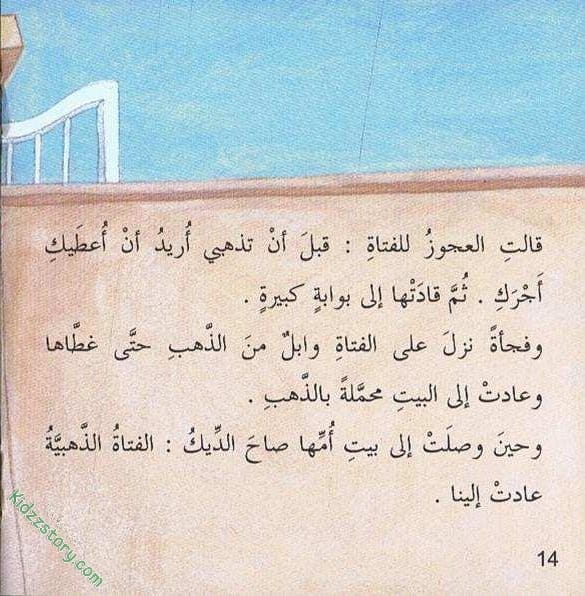 قالتِ العجوزُ للفتاةِ : قبلَ أنْ تذهبي أُريدُ أنْ أُعطَيكِ
أَجْرَكِ . ثُمَّ قادَتْها إلى بوابةٍ كبيرةٍ .
وفجأةً نزلَ على الفتاةِ وابلٌ منَ الذَّهبِ حتَّى غطَّاها
وعادتْ إلى البيتِ محمَّلةً بالذَّهبِ .
وحينَ وصلَتْ إلى بيتِ أُمِّها صاحَ الدِّيكُ : الفتاةُ الذَّهبيَّةُ
عادتْ إلينا .
Kidzzstory.com
14